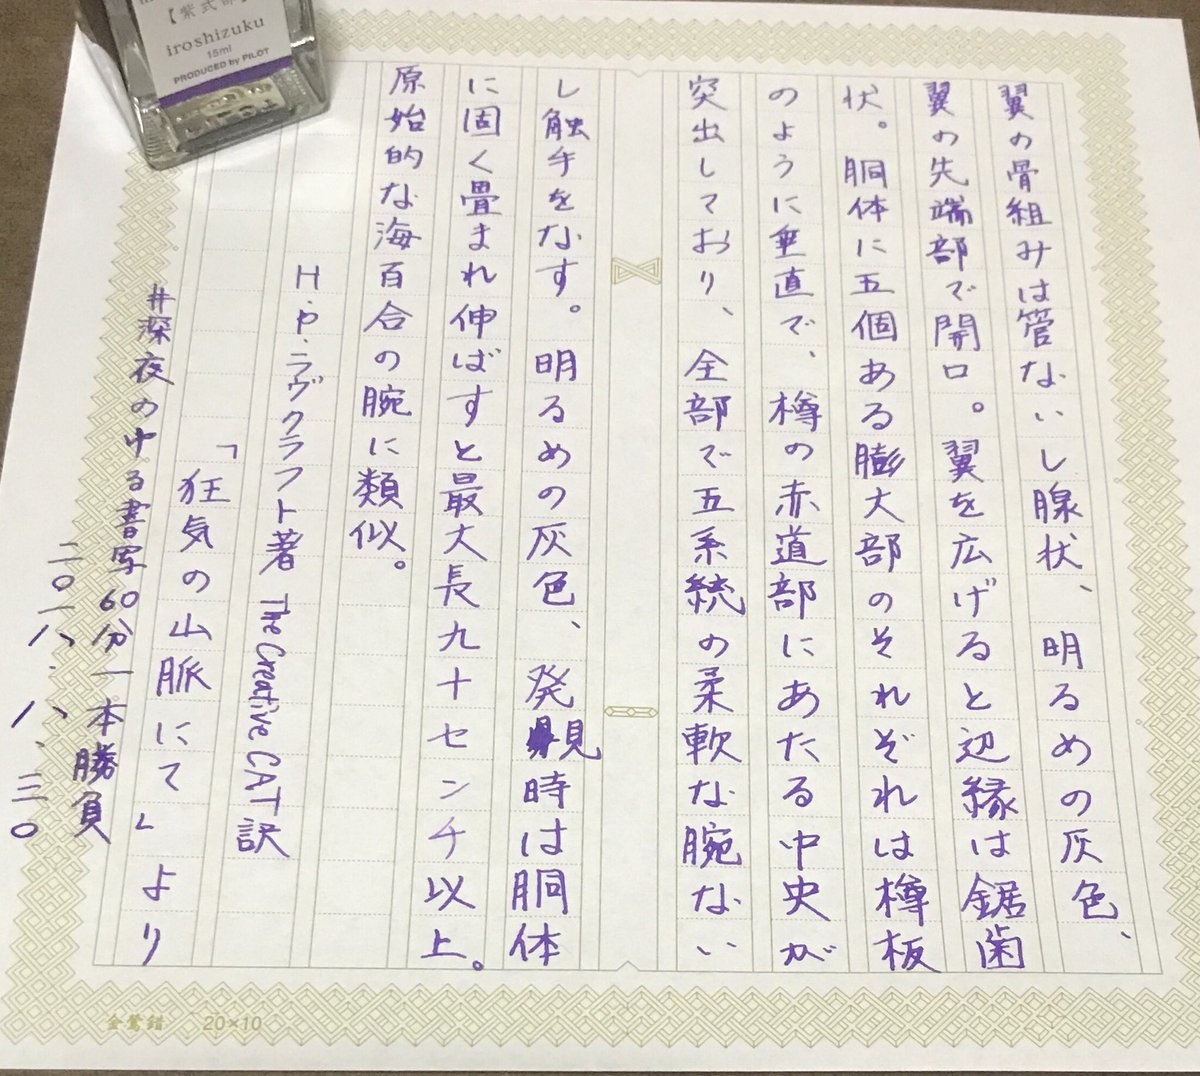 翼の骨組みは管ないし腺状、明るめの灰色、
翼の先端部で開口。翼を広げると辺縁は鋸歯
状。胴体に五個ある膨大部のそれぞれは樽板
のように垂直で、樽の赤道部にあたる中央が
突出しており、全部で五系統の柔軟な腕ない
し触手をなす。明るめの灰色、発見時は胴体
に固く畳まれ伸ばすと最大長九十センチ以上。
原始的な海百合の腕に類似。
H.P.ラヴクラフト著 The Creative CAT訳
「狂気の山脈にて」より
#深夜のゆる書写60分一本勝負
二〇一八.八.三〇
【紫式部】
iroshizuku
15ml
PRODUCED by PILOT
金鶯錯 20×10